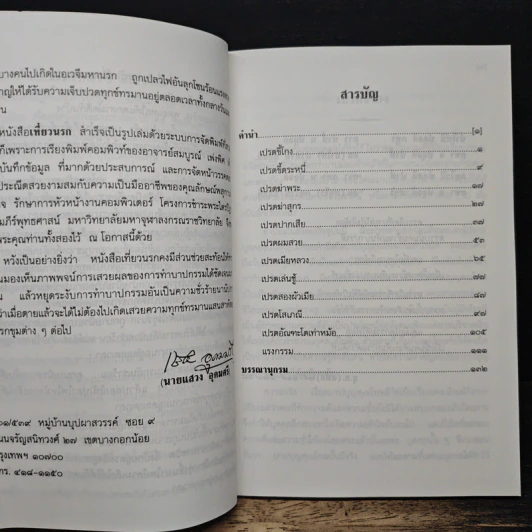 บางคนไปเกิดในอเวจีมหานรก ถูกเปลวไฟอันลุกโชนร้อนแรงเผา
ให้ได้รับความเจ็บปวดทุกข์ทรมานอยู่ตลอดเวลาทั้งกลางวัน
หนังสือเที่ยวนรก สำเร็จเป็นรูปเล่มด้วยระบบการจัดพิมพ์
ก็เพราะการเรียงพิมพ์คอมพิวท์ของอาจารย์สมบูรณ์ เพ่งพิศ
บันทึกข้อมูล ที่มากด้วยประสบการณ์ และการจัดหน้าวรรคตอน
ประณีตสวยงามสมกับความเป็นมืออาชีพของคุณลักษณ์
รักษาการหัวหน้างานคอมพิวเตอร์ โครงการชำระพระไตรปิฎก
คัมภีร์พุทธศาสน์ มหาวิทยาลัยมหาจุฬาลงกรณราชวิทยาลัย
พระคุณท่านทั้งสองไว้ ณ โอกาสนี้ด้วย
หวังเป็นอย่างยิ่งว่า หนังสือเที่ยวนรกคงมีส่วนช่วยสะท้อนให้
มองเห็นภาพพจน์การเสวยผลของการทำบาปกรรมได้ชัดเจน
แล้วหยุดระงับการทำบาปกรรมอันเป็นความชั่วร้าย
ว่าเมื่อตายแล้วจะได้ไม่ต้องไปเกิดเสวยความทุกข์ทรมานแสนสาหัส
นรกขุมต่าง ๆ ต่อไป
(นายแสวง อุดมศรี)
๐๑/๕๓๙ หมู่บ้านบุปผาสวรรค์ ซอย ๙
ถนนจรัญสนิทวงศ์ ๒๗ เขตบางกอกน้อย
กรุงเทพฯ ๑๐๗๐๐
โทร. ๔๑๘-๑๑๕๐
สารบัญ
คำนำ [๑]
เปรตขี้โกง ๑
เปรตขี้ตระหนี่ ๙
เปรตฆ่าพระ ๑๗
เปรตฆ่าสุกร ๒๗
เปรตปากเสีย ๓๗
เปรตผมสวย ๕๓
เปรตเมียหลวง ๖๕
เปรตเล่นชู้ ๗๗
เปรตสองผัวเมีย ๘๗
เปรตโสเภณี ๙๗
เปรตอัณฑะโตเท่าหม้อ ๑๐๕
แรงกรรม ๑๑๑
บรรณานุกรม ๑๓๒